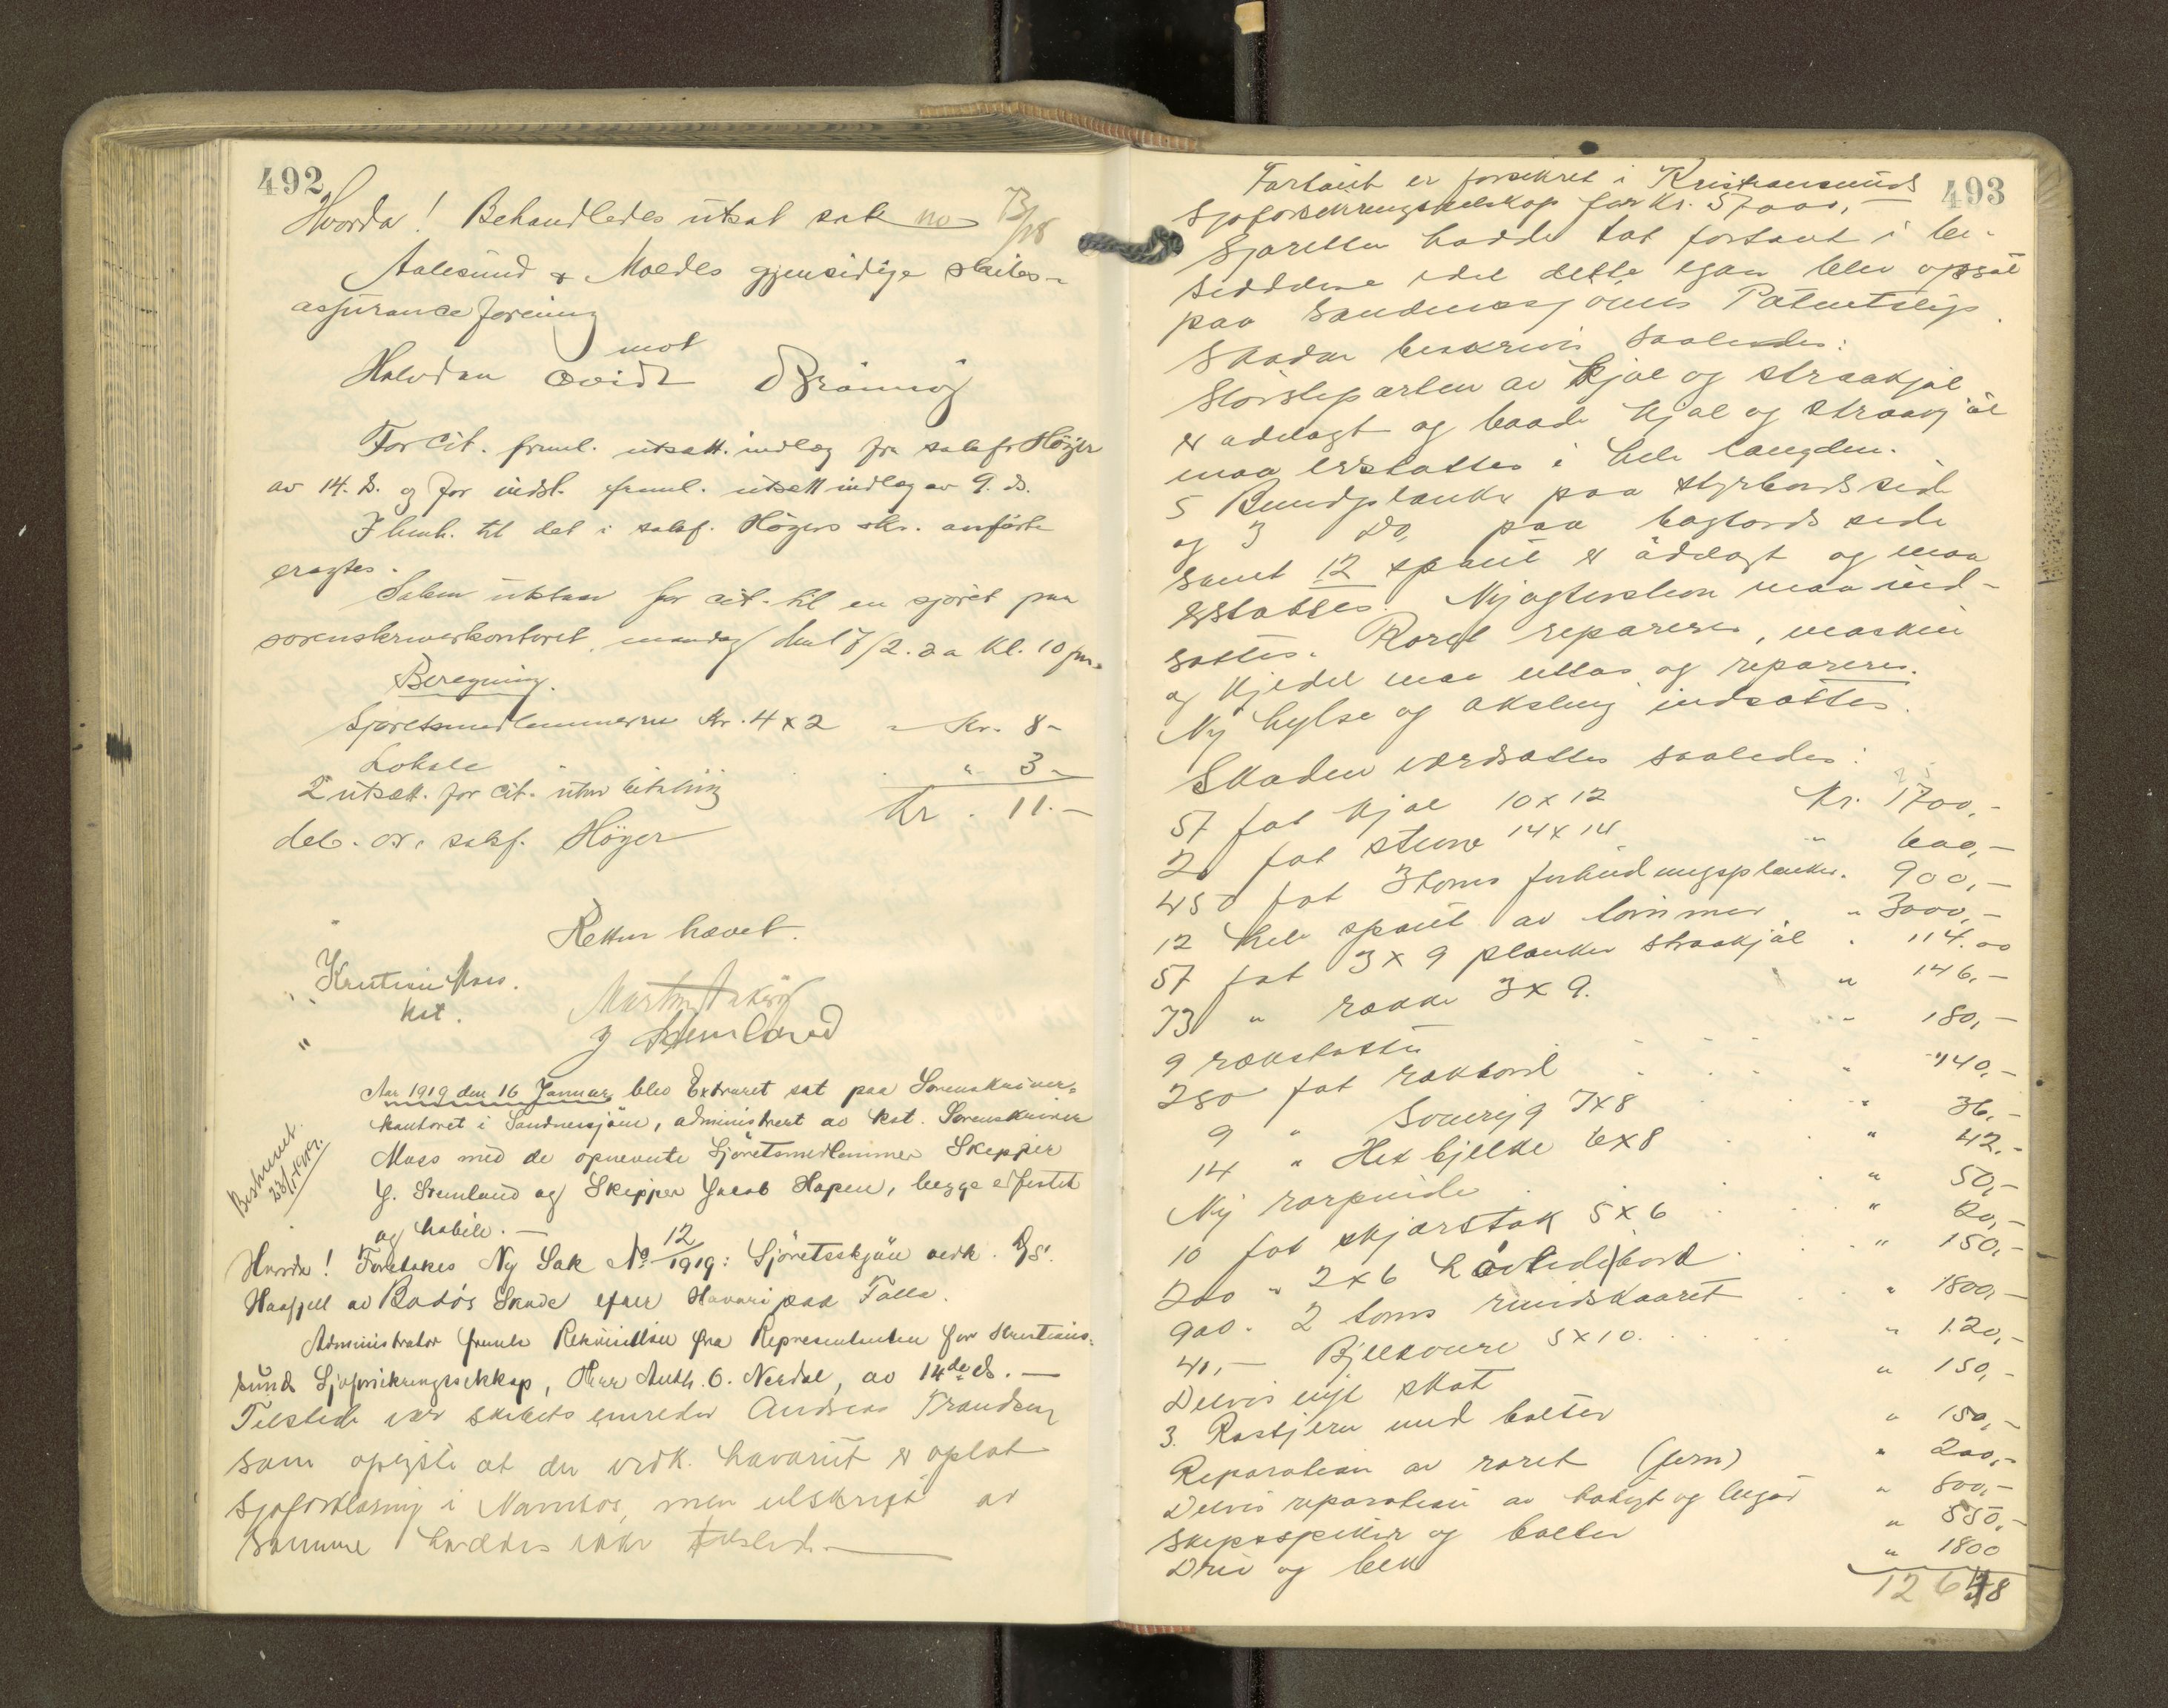 492
Hvorda! Behandledes utsat sak no 73/18
Aalesund & Moldes gjensidige skibs-
assuranceforening
mot
Halvdan Qvidt Brønnøy
For cit. freml. utsætt. indlæg fra sakf. Høyer
av 14. ds. og for indst. freml. utsætt indlæg av 9. ds.
I henh. til det i sakf. Høyers skr. anførte
eragtes.
Saken utstaar for cit. til en sjøret paa
sorenskriverkontoret mandag den 17/2. d a kl. 10 fm.
Beregning.
Sjøretsmedlemmerne kr. 4 x 2 - Kr. 8-
Lokale " 3-
2 utsætt. for cit. uten betaling Kr. 11.-
deb. o.r. sakf. Høyer
Retten hævet.
Kristian Moss.
kst.
J Stemland
Aar 1919 den 16 Januar blev Extraret sat paa Sorenskriver-
kontoret i Sandnessjøen, administrert av kst. Sorenskriver
Moss med de opnevnte Sjøretsmedlemmer Skipper
J. Stemland og Skipper Jacob Hopen, begge edfestet
og habile. -
Beskrevet
23/1 1919.
Hvorda! Foretakes Ny Sak No 12/1919: Sjøretsskjøn vedk. D/S
Haafjell av Bodøs Skade efter Havari paa Folla.
Administrator fremla Rekvisition fra Representanten for Kristians-
sunds Sjøforsikringsselskap, Herr Anth. O. Nerdal, av 14de ds. -
Tilstede var skibets einreder Andreas Frandsen
som oplyste at der vedk. havariet er oplat
Sjøforklaring i Namsos, men utskrift av
samme haddes ikke tilstede. -
493
Fartøiet er forsikret i Kristiansunds
Sjøforsikringsselskap for Kr. 57000,-
Sjøretten hadde tat fartøiet i be-
siddelse idet dette igaar blev opsat
paa Sandnessjøens Patentslip.
Skaden beskrives saaledes:
Størsteparten av kjøl og straakjøl
er ødelagt og baade kjøl og straakjøl
maa erstattes i hele længden.
5 Bundplanke paa styrbords side
og 3 Do. paa bagbords side
samt 12 spant er ødelagt og maa
erstattes. Ny agterstevn maa ind-
sættes. Roret repareres, maskin
og kjedel maa uttas og repareres.
Ny hylse og aksling indsættes.
Skaden værdsættes saaledes:
57 fot kjøl 10 x 12 Kr. 1700,-
20 fot stevne 14 x 14 " 600,-
450 fot 3 toms forhudningsplanker. 900,-
12 hele spant av tømmer " 3000,-
57 fot 3 x 9 planker straakjøl " 114.00
73 " række 3 x 9. " 146,-
9 rækstøtter 180,-
280 fot rækbord " 140,-
9 " 7 x 8 " 36,-
14 " Hekbjelke 6 x 8 " 42,-
Ny " 50,-
10 fot skjærstok 5 x 6 " 20,-
200 " 2 x 6 bord " 150,-
900 " 2 toms rundskaaret " 1800,-
40,- 5 x 10. " 120,-
Delvis nyt skot " 150,-
3. Røstjern med bolter " 150,-
Reparation av roret (jern) " 200,-
Delvis reparation av halvgt og " 800,-
Skipsspiker og bolter " 550,-
Driv og bek " 1800
12648